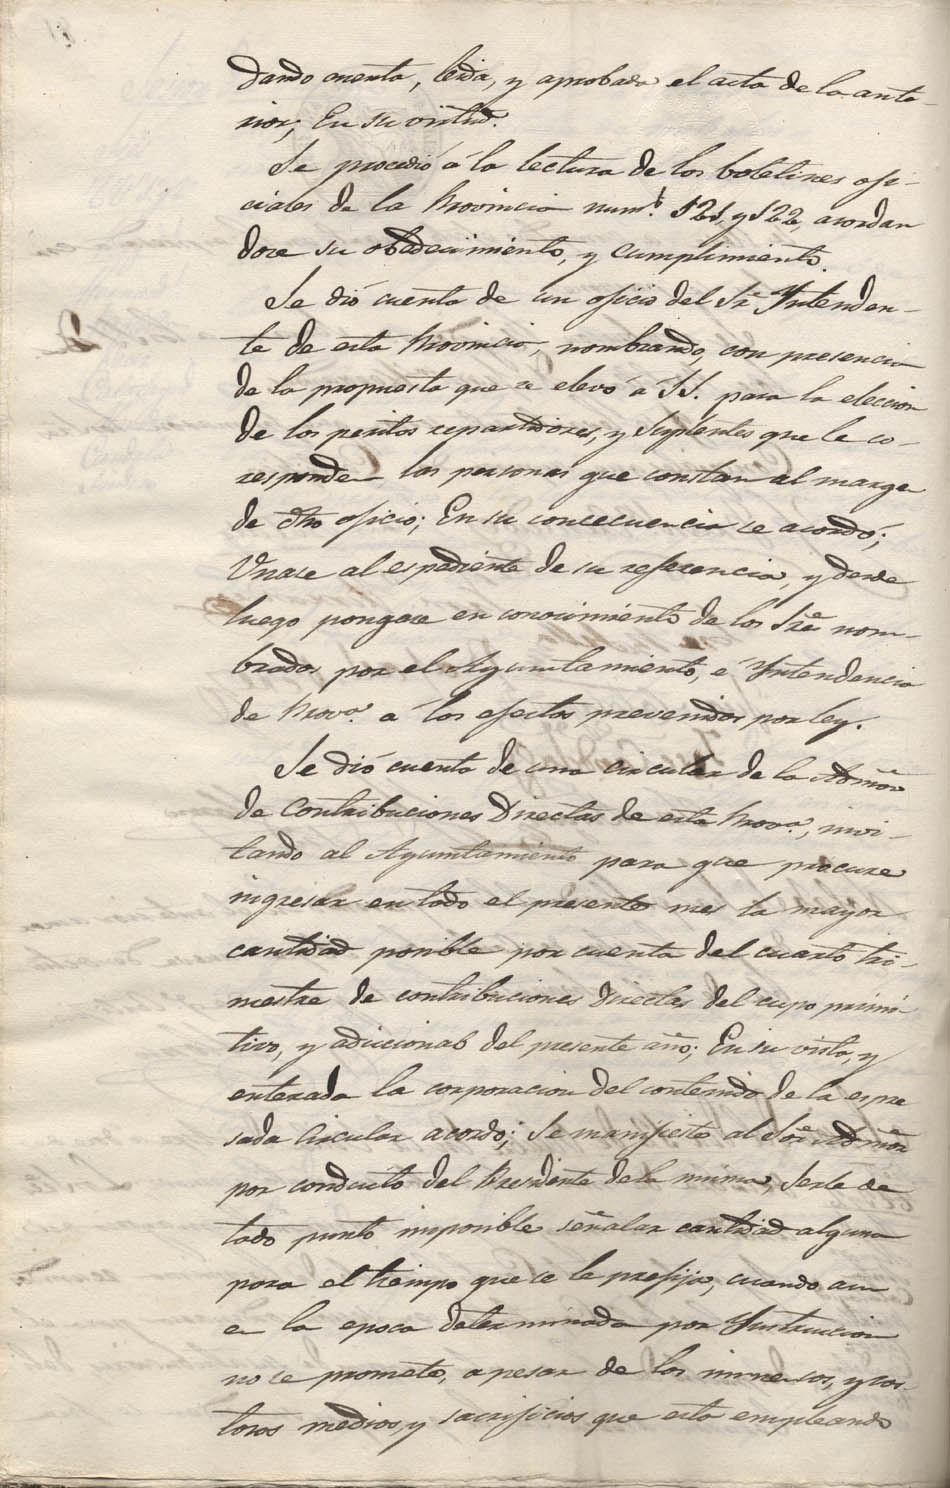 dando cuenta, leida, y aprobada el acta de la ante-
rior; En su virtud.
Se procedió á la lectura de los boletines ofi-
ciales de la Provincia num.s 121, y 122, acordan
dose su obedecimiento, y cumplimiento.
Se dió cuenta de un oficio del Sr. Yntenden-
te de esta Provincia, nombrando, con presencia
de la propuesta que se elevó á SS. para la eleccion
de los peritos repartidores, y suplentes que le co-
responden las personas que constan al marge
de dho oficio; En su concecuencia se acordó;
Unase al espediente de su referencia, y desde
luego pongase en conocimiento de los Sres nom-
brados por el Ayuntamiento, é Yntendencia
de Prov.a a los efectos prevenidos por ley.
Se dió cuenta de una circular de la Admon
de Contribuciones Directas de esta Prov.a, invi-
tando al Ayuntamiento para que procure
ingresar en todo el presente mes la mayor
cantidad posible por cuenta del cuarto tri-
mestre de contribuciones directas del cupo primi-
tivo, y adiccional del presente año; En su vista, y
enterada la corporacion del contenido de la espre
sada circular acordó; Se manifieste al Sor Admor
por conducto del Presidente de la misma, serle de
todo punto imposible señalar cantidad alguna
para el tiempo que se le prefija, cuando aun
en la epoca determinada por Ynstruccion
no se promete, apesar de los inmensos, y cos-
tosos medios, y sacrificios que esta empleando